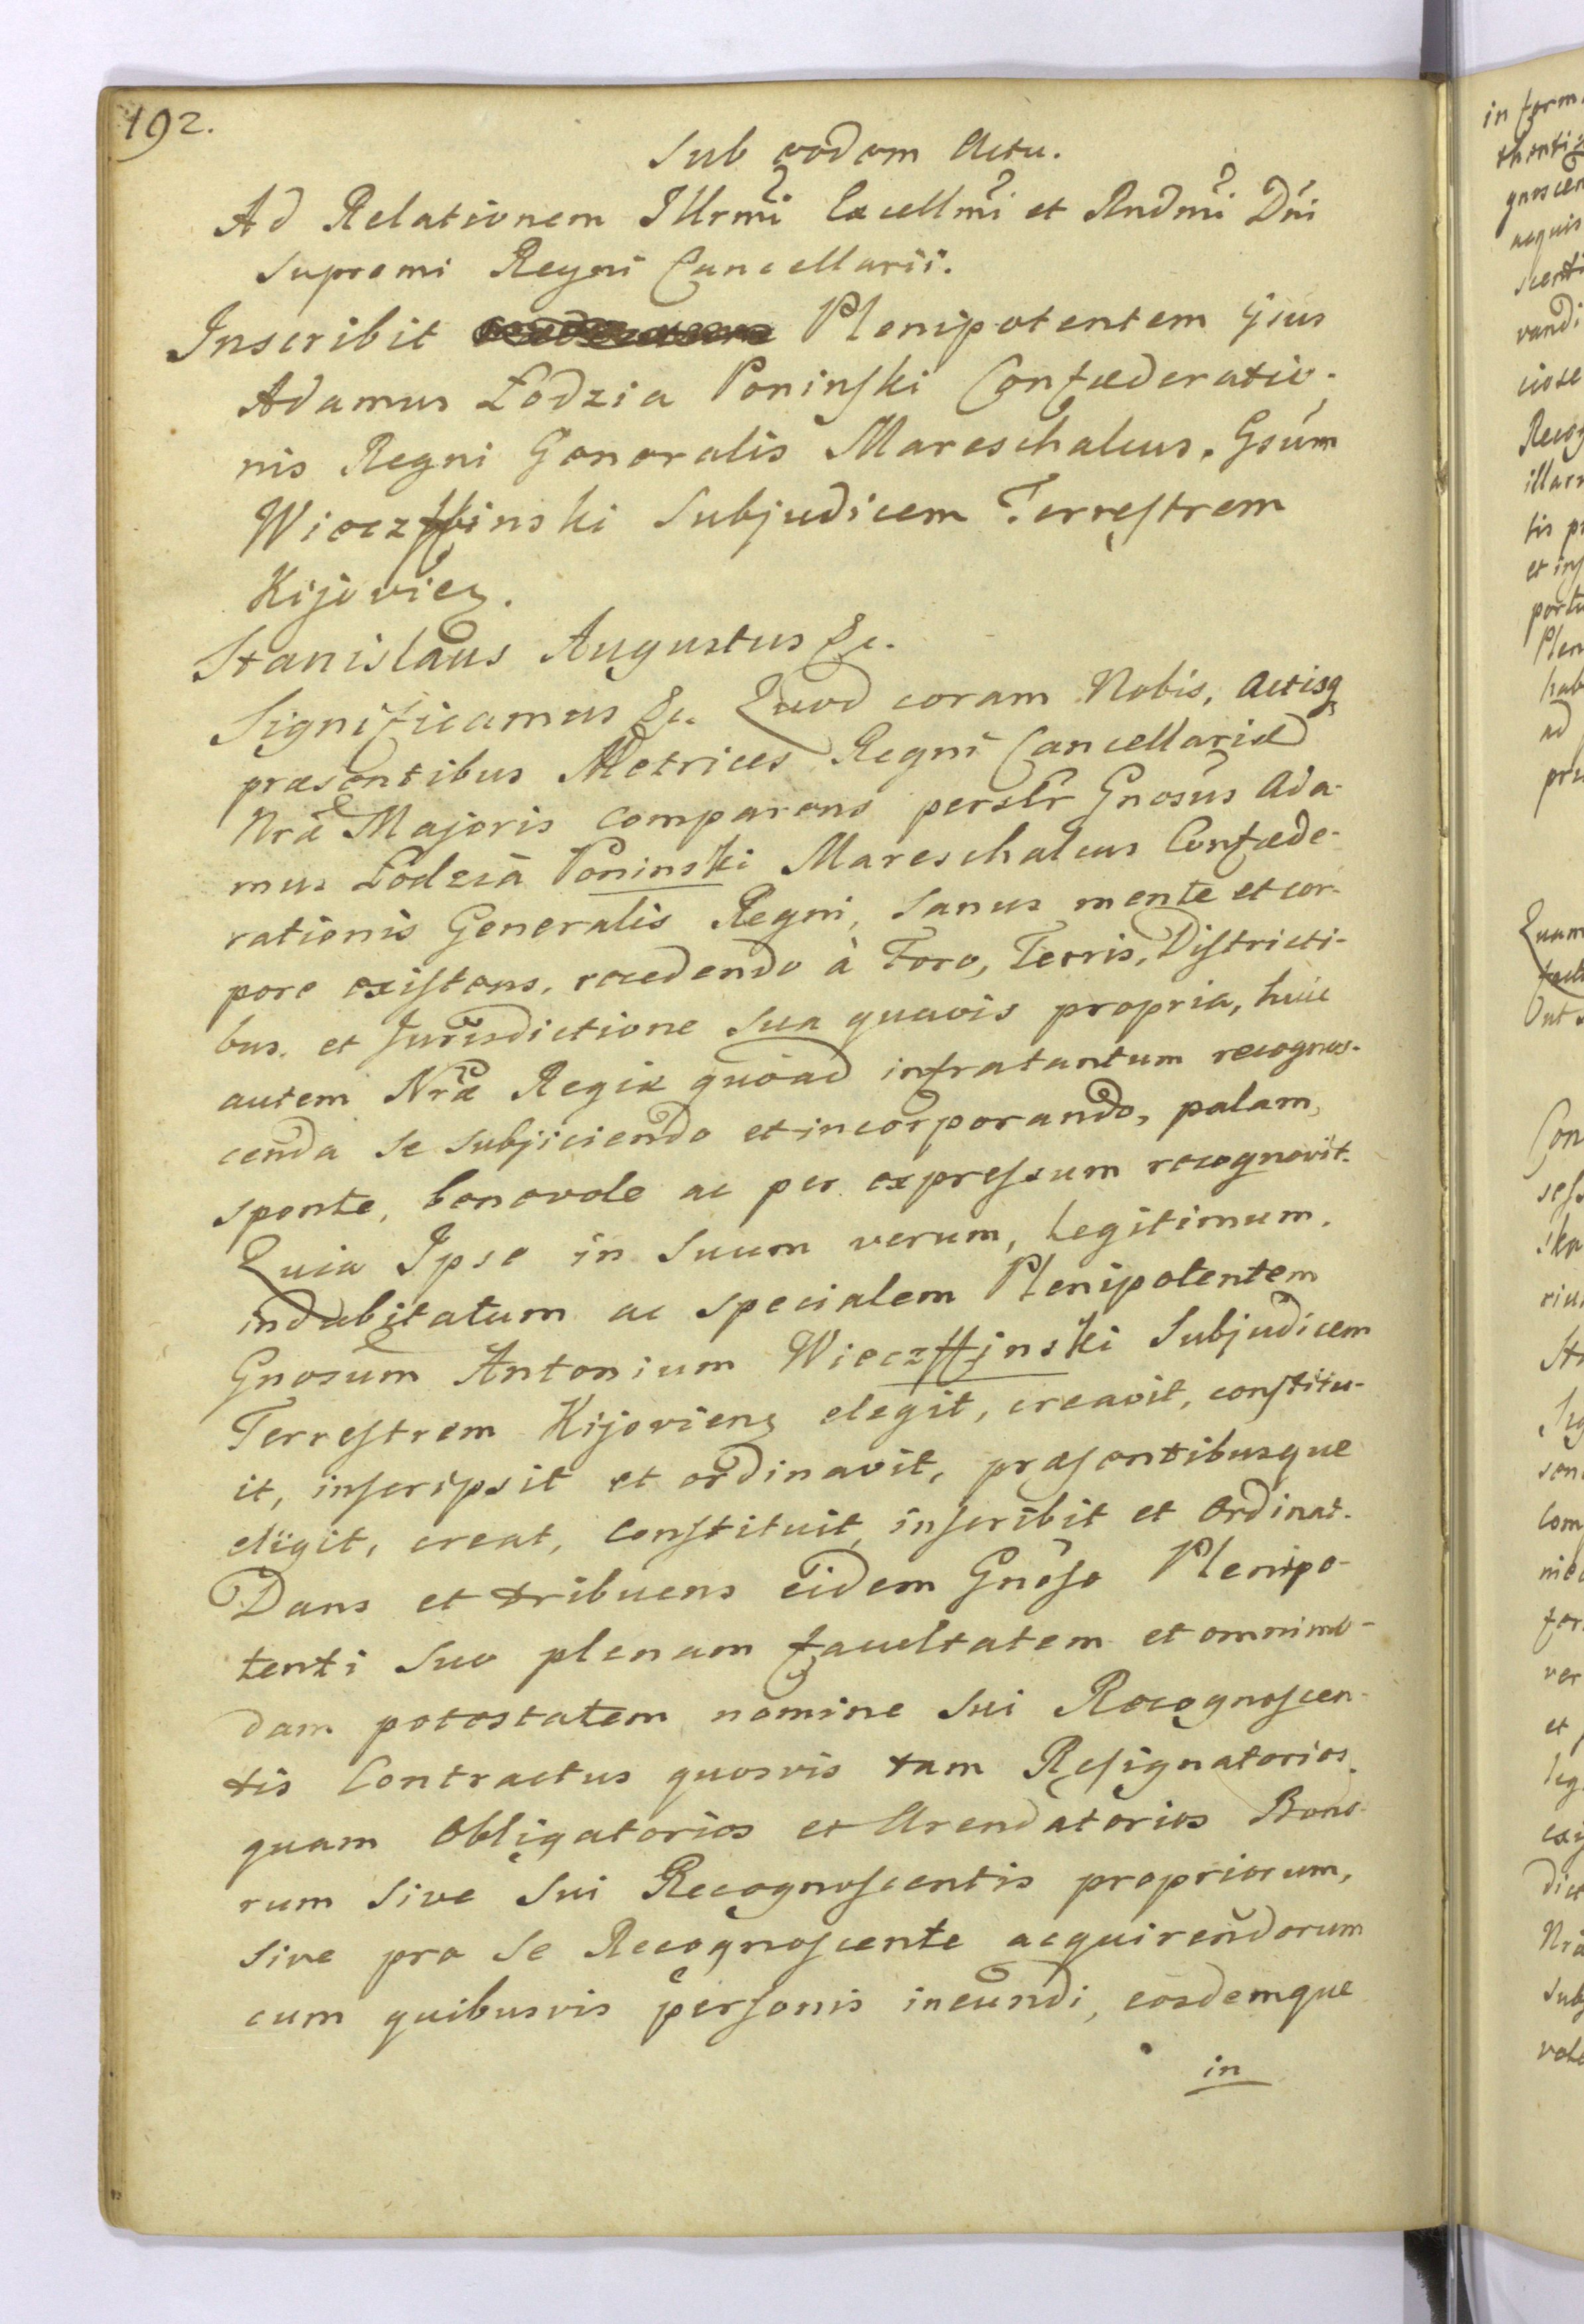 192.
Sub eodem Actu.
Ad Relationem Illrmi Excellmi et Rndmi Dni
Supremi Regni Cancellarii.
Inscribit Plenipotentem Gsus
Adamus Łodzia Poninski Confæderatio-
nis Regni Generalis Mareschalcus. Gsum
Wieczffinski Subjudicem Terrestrem
Kijovien.
Stanislaus Augustus &c.
Significamus &c. Quod coram Nobis, Actisq
præsentibus Metrices Regni Cancellariæ
Nræ Majoris comparens persltr Gnosus Ada-
mus Łodzia Poninski Mareschalcus Confæde-
rationis Generalis Regni, sanus mente et cor-
pore existens, recedendo à Foro, Terris, Districti-
bus, et Jurisdictione sua quavis propria, huic
autem Nræ Regiæ quòad infratantum recognos-
cenda se subjiciendo et incorporando, palam,
sponte, benevole ac per expressum recognovit.
Quia Ipse in Suum verum, legitimum,
indubitatum ac specialem Plenipotentem
Gnosum Antonium Wieczffinski Subjudicem
Terrestrem Kijovien elegit, creavit, constitu-
it, inscripsit et ordinavit, præsentibusque
eligit, creat, constituit, inscribit et Ordinat.
Dans et tribuens eidem Gnoso Plenipo-
tenti Suo plenam facultatem et omnimo-
dam potestatem nomine Sui Recognoscen-
tis Contractus quosvis tam Resignatorios,
quam Obligatorios et Arendatorios Bono-
rum sive Sui Recognoscentis propriorum,
sive pro se Recognoscente acquirendorum
cum quibusvis personis ineundi, eosdemque
in